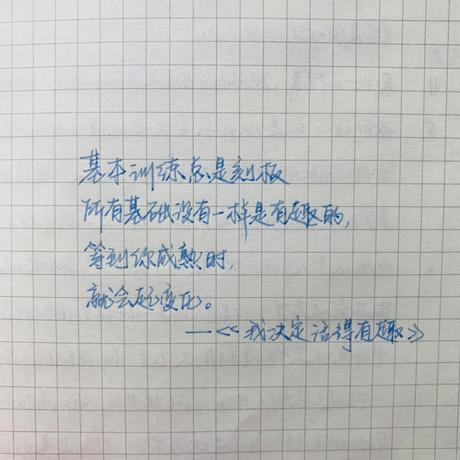 基本训练总是刻板
所有基础没有一样是有趣的,
等到你成熟时,
就会起变化。
——<<我决定活得有趣>>